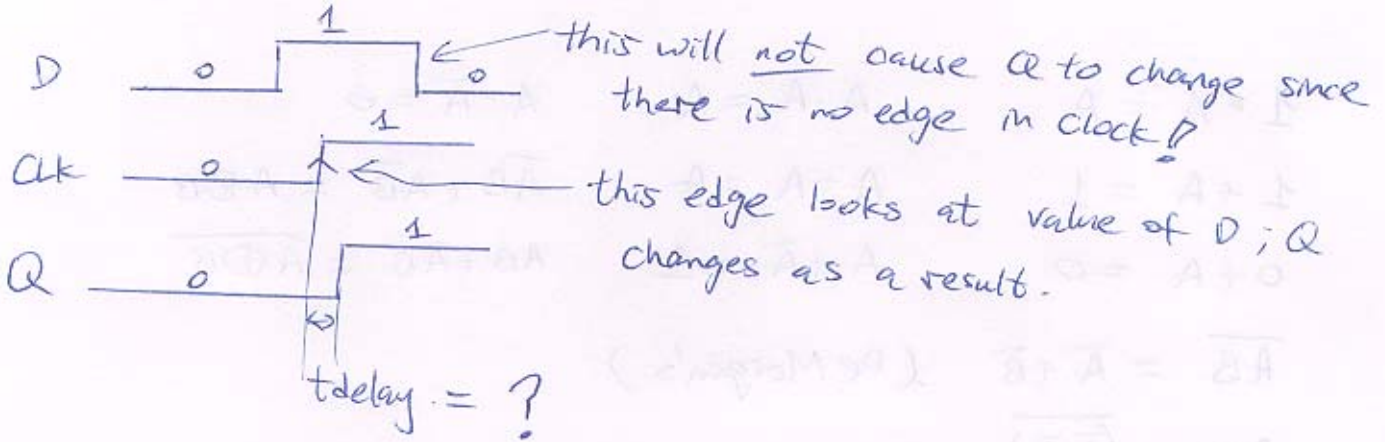 1
D 0 0
this will not cause Q to change since
there is no edge in Clock!
1
Clk 0
this edge looks at value of D; Q
changes as a result.
1
Q 0
tdelay = ?
1 + A = 1
0 + A = 0
(De Morgan's)